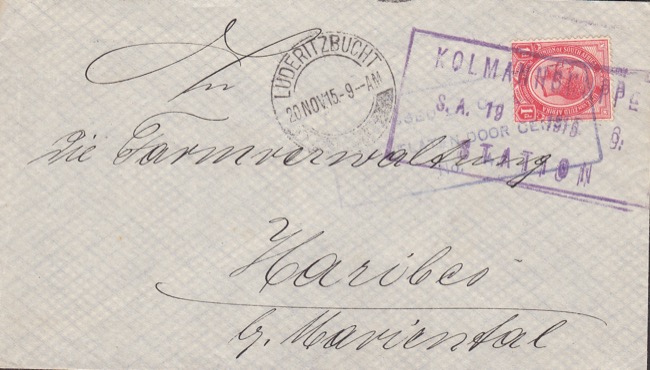 An
LÜDERITZBUCHT
20 NOV 15-9-AM
KOLMANNSKUPPE
S. A. 19
1915
STATION
DOOR
UNION OF SOUTH AFRICA
1D
Die Farmverwaltung
Haribes
b/. Mariental